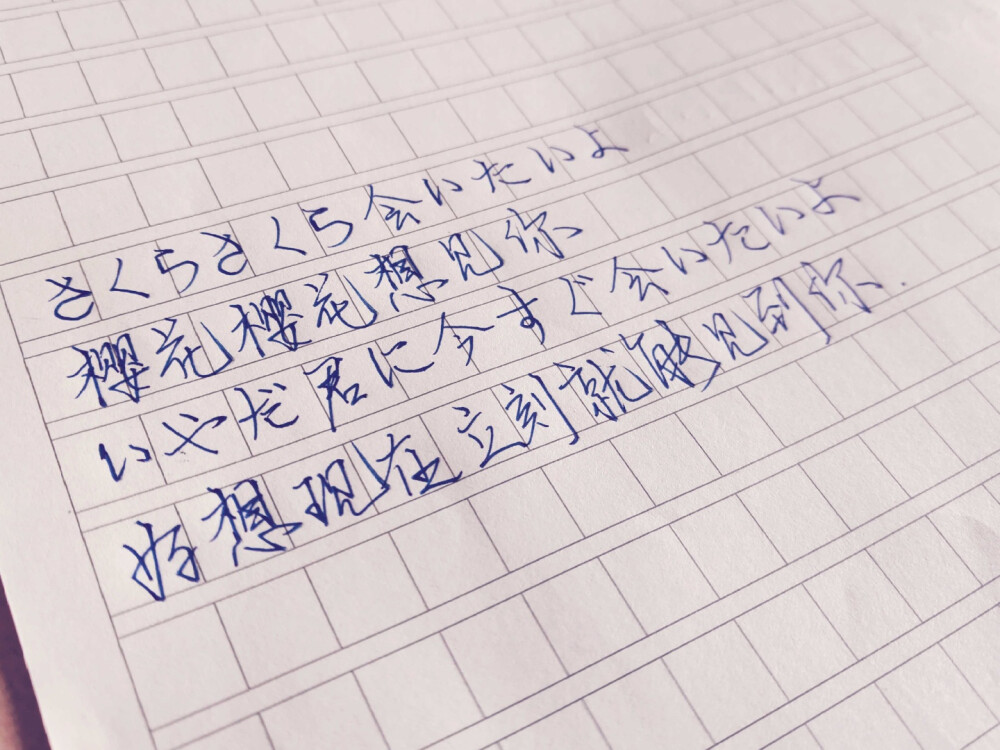 さくらさくら会いたいよ
樱花樱花想见你
いやだ君に今すぐ会いたいよ
好想现在立刻就能见到你.